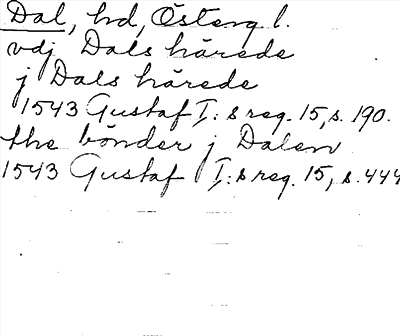 Dal, hd, Österg l.
vdj Dals härede
j Dals härede
1543 Gustaf I:s reg. 15, s. 190.
the bönder j Dalen
1543 Gustaf I:s reg. 15, s. 444